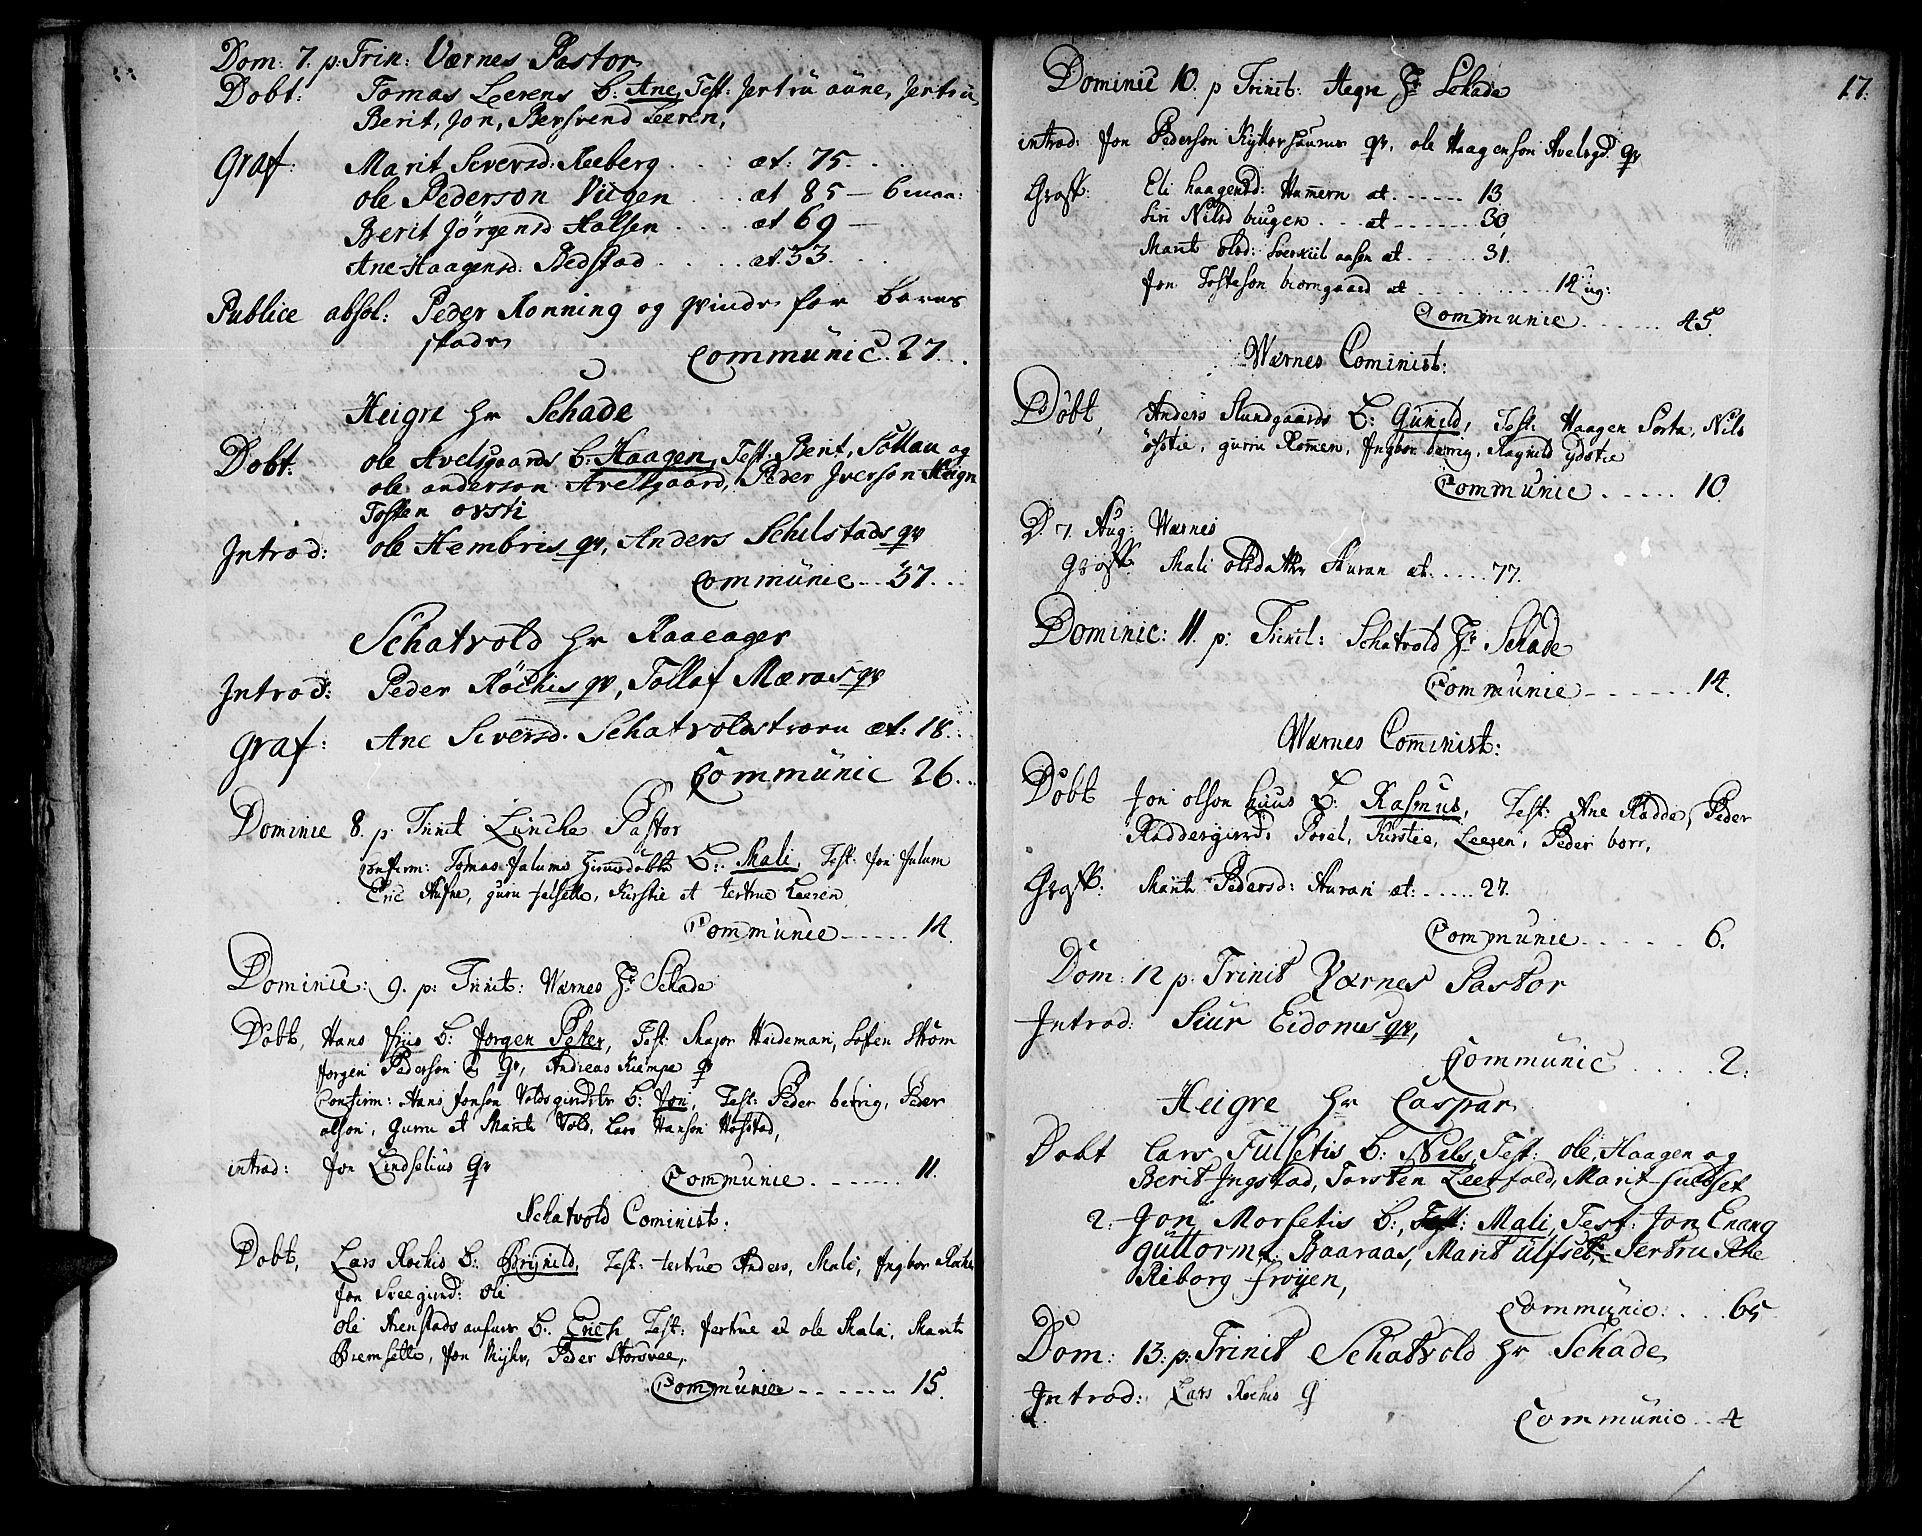 Dom: 7. p: Trin: Værnes Pastor
Døbt: Tomas Leerens b: Ane, Test: Jertru aune, Jertru
Berit, Jon, Bersvend Leeren,
Graf: Marit Siversd: Reeberg . . . æt: 75.
ole Pederson Viigen . . . æt 85 — 6 maa:
Berit Jörgensd Halsen . . . . æt 69 —
Ane Haagensd. Bedstad . . . . . æt. 33.
Publice absol: Peder Rönning og qvinde for barns
stade
Communic. 27.
Heigre hr Schade
Døbt: ole Avelsgaards b: Haagen, Test: Berit, Sollau og
ole anderson Avelsgaard, Peder Iverson Heigre
Tosten ovsti
Introd: ole Hembris qv, Anders Schilstads qv
Communic . . 37.
Schatvold hr Raaeager
Introd: Peder Röckis qv, Tollaf Mæraas qv
Graf: Ane Siversd. Schatvoldstrøen æt: 18.
Communic 26.
Dominic 8. p Trinit Lüncke Pastor
confirm: Tomas Julums hiemedøbte B: Mali, Test: Jon Julum
Eric Aufne, guru, Kirstie et Jertrue Leeren
Communic - - - - - 14.
Dominic: 9. p: Trinit: Wærnes Hr Schade
Døbt, Hans Fiius b: Jörgen Peter, Test: Major Heideman, Sofren Ström
Jörgen Pederson & qv, Andreas Kiempe q
Confirm: Hans Jonson Voldsgierdets b: Jon, Test: Peder bevrig, Peder
olson, Gurru et Marit Vold, Lars Hanson Hofstad,
introd: Jon Lindselius qv
Communic . - - - - - 11.
Schatvold Cominist:
Døbt, Lars Rockis B: Brynild, Test: Jertrue Anders, Mali, Ingbor Rocki
Jon Sveegierd: ole
ole Steenstads B: Erich, Test: Jertrue et ole Mala, Marit
Bremsette, Jon Myhr, Peder Storsvee,
Communic - - - - - - - 15.
17.
Dominic 10. p Trinit: Hegre Hr Schade
introd: Jon Pederson qv, ole Haagenson Avelsgd. qv
Graff: Eli haagensd: Hammern æt - - - - - - 13
Siri Nilsd biugen . . . æt - - - - - - - 30,
Marit olsd: Sverkiilaasen æt - - - - - - 31.
Jon Tosteson biorngaard æt - - - - - - - - - - - 14 ug:
Communic. - - - - - - 45.
Wærnes Cominist:
Döbt, Anders Slundgaards B: Gunild, Test: Haagen Sorta, Nils
östie, gurru Rømen, Ingbor børrig, Ragnild ydstie
Communic. - - - - - 10.
D. 7. Aug: Wærnes
Graff: Mali olsdatter Auran æt. - - - - 77.
Dominic: 11. p: Trinit: Schatvold Hr Schade
Communic - - - - - - - 14.
Wærnes Cominist:
Döbt Jon olson huus B: Rasmus, Test: Ane Radde, Peder
Raddergierd: Porel, Kirstie, Leeren, Peder borr,
Graff: Marit Pedersd: Auran æt: - - - - - - 27.
Communic - - - - - - - 6.
Dom: 12 p: Trinit Værnes Pastor
Introd: Siur Eidoms qv,
Communic . . . . . 2.
Heigre hr Caspar
Døbt Lars Fulsetis b: Nils, Test: ole, Haagen og
Berit Ingstad, Torsten Leerfald, Marit fuldset
2: Jon Morsetis b: Mali, Test: Jon Enang
guttorm Baaraas, Marit ülfset, Jertru
Riborg frøijen,
Communic: . . . 65
Dom: 13. p: Trinit Schatvold hr Schade
Introd: Lars Rockis q
Communic . . 4